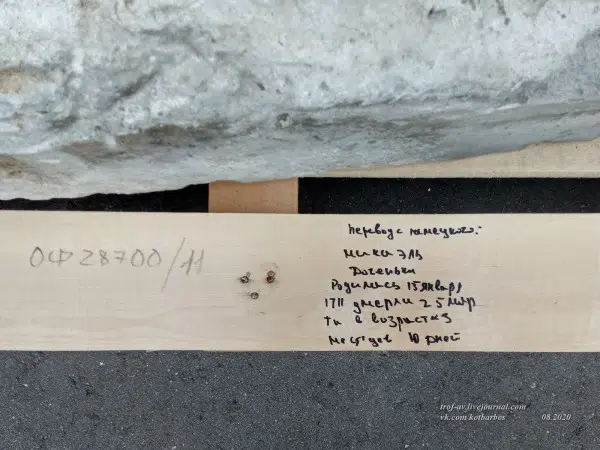 ОФ 28700/11
Перевод с немецкого:
микаэль
Доченьки
Родились 15 январ
1711 умерли 25 мар
та в возрасте 3
месяцев 10 дней
trof-av.livejournal.com
vk.com/kotharbos 08.2020